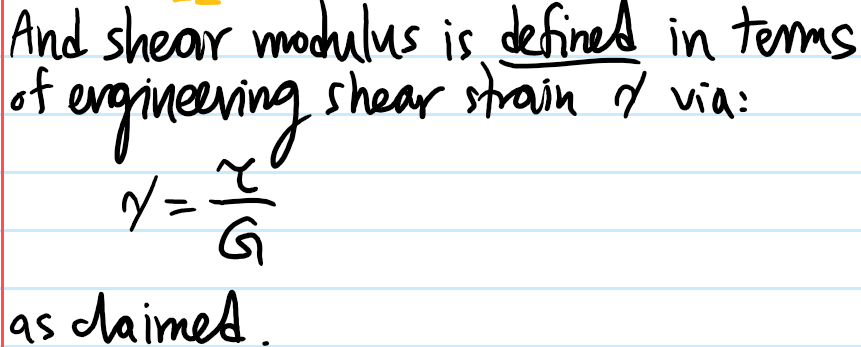 And shear modulus is defined in terms
of engineering shear strain γ via:
γ = τ/G
as claimed.